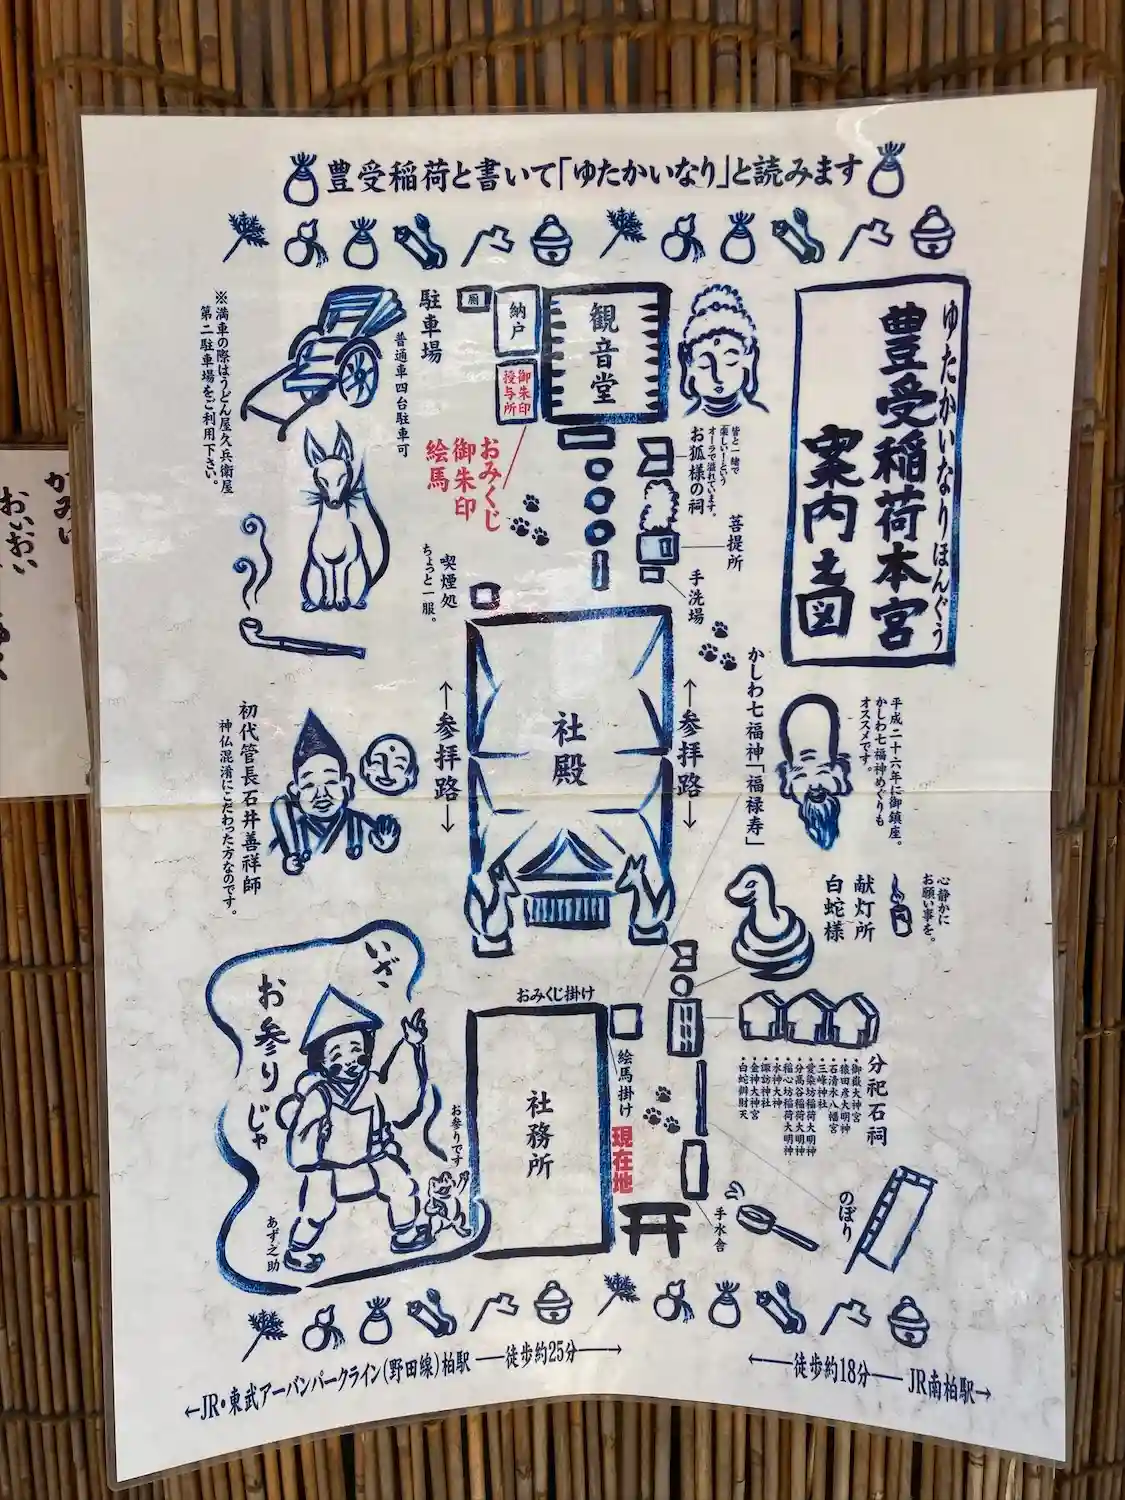 豊受稲荷と書いて「ゆたかいなり」と読みます
ゆたかいなりほんぐう
豊受稲荷本宮
案内図
観音堂
納戸
厠
御朱印
授与所
駐車場
普通車四台駐車可
※満車の際はうどん屋久兵衛屋
第二駐車場をご利用下さい。
おみくじ
御朱印
絵馬
皆と一緒で
「楽しい！」という
オーラで溢れています。
お狐様の祠
菩提所
手洗場
喫煙処
ちょっと一服。
社殿
←参拝路→
←参拝路→
かしわ七福神「福禄寿」
平成二十六年に御鎮座。
かしわ七福神めぐりも
オススメです。
初代管長石井善祥師
神仏混淆にこだわった方なのです。
心静かに
お願い事を。
献灯所
白蛇様
いざ、
お参りじゃ
お参りです
あず之助
おみくじ掛け
社務所
絵馬掛け
現在地
分祀石祠
・御嶽大神宮
・猿田彦大明神
・石清水八幡宮
・三峰神社
・愛染坊稲荷大明神
・分高谷稲荷大明神
・稲心坊稲荷大明神
・水神大神
・諏訪神社
・金神大神宮
・白蛇辨財天
のぼり
手水舎
←JR・東武アーバンパークライン(野田線)柏駅 ―徒歩約25分→
←徒歩約18分― JR南柏駅→
おいおい